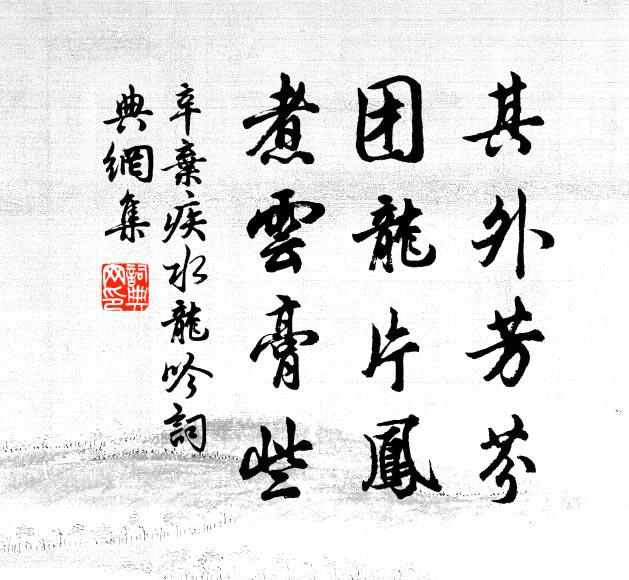 其外芳芬
团龍片鳳
煮雲膏些
辛棄疾水龍吟詞
典網集
詞典网印